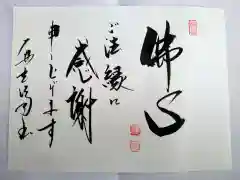 佛心
ご法縁に
感謝
申し上げます